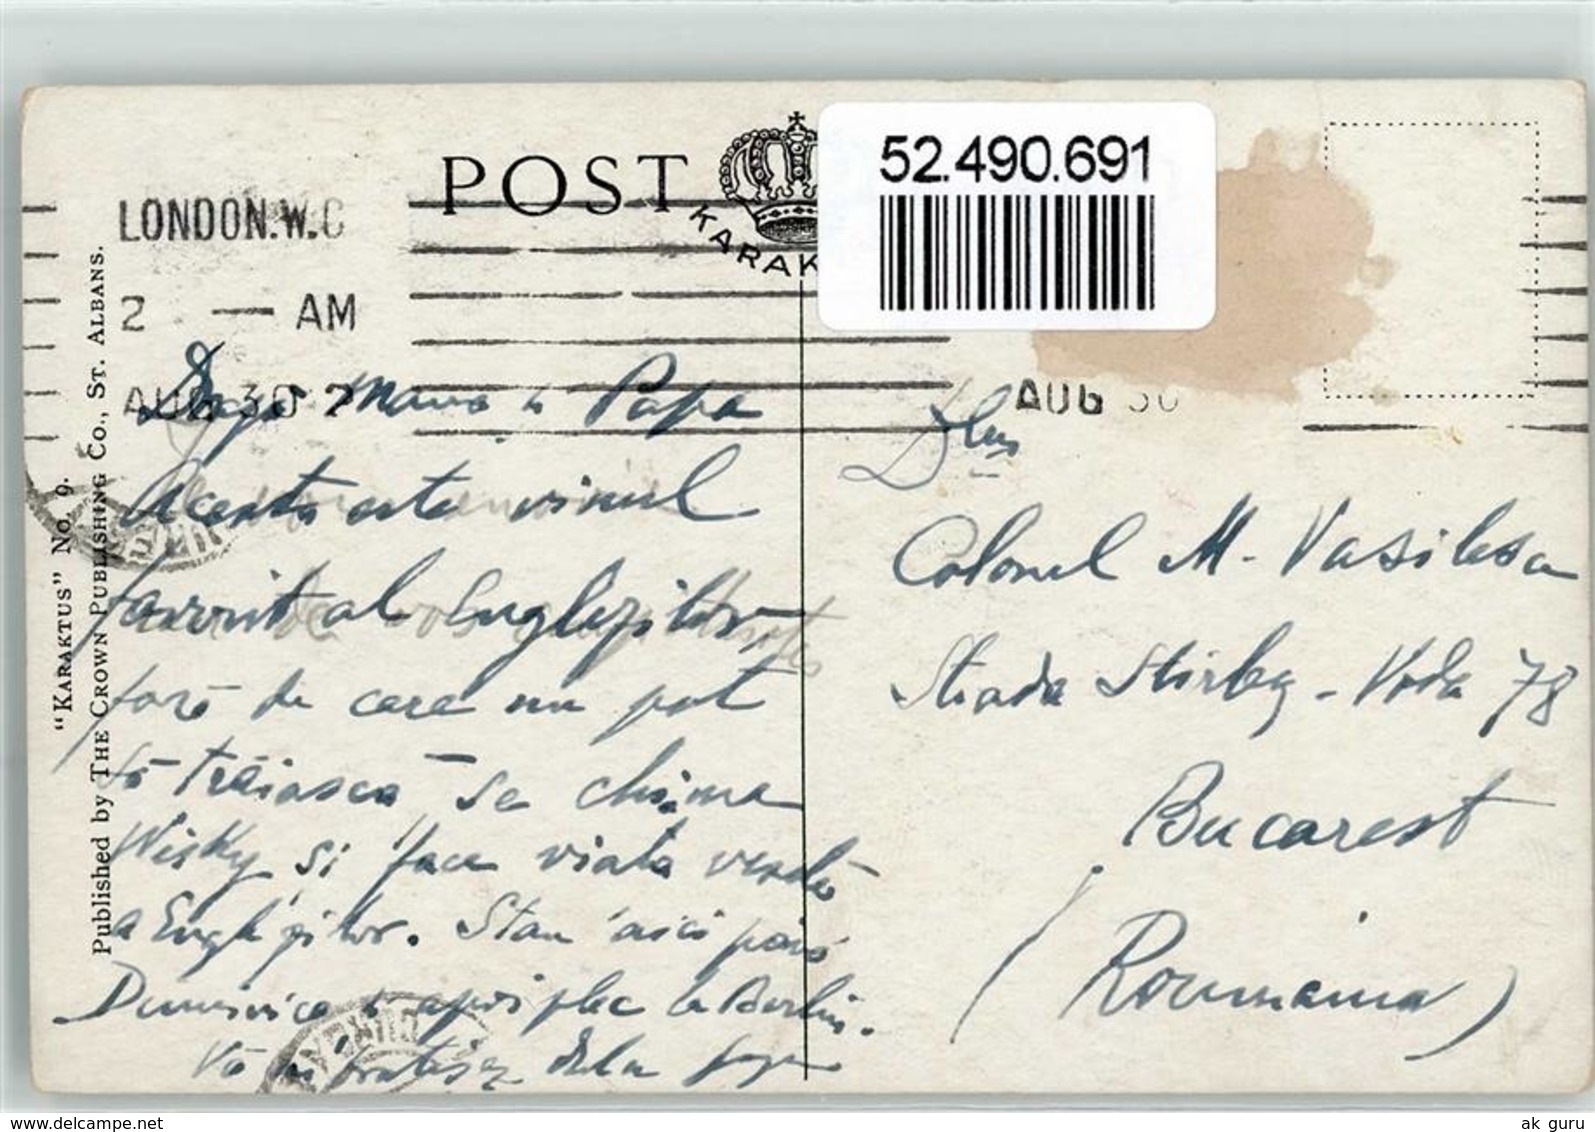 POST
KARAK
52.490.691
LONDON.W.C
2 — AM
AUG 30 ?
AUG 30
"KARAKTUS" No. 9.
Published by THE CROWN PUBLISHING Co., ST. ALBANS.
Dragă Mama și Papa
Acesta este vinul
favorit al Englezilor
fără de care nu pot
să trăiască se chiama
Wisky și face viata
a Englezilor. Stau aici până
Duminică și apoi plec la Berlin.
Vă
Dlui
Colonel M. Vasilescu
Strada Stirbey-Voda 78
Bucarest
(Roumania)
ak guru
www.delcampe.net